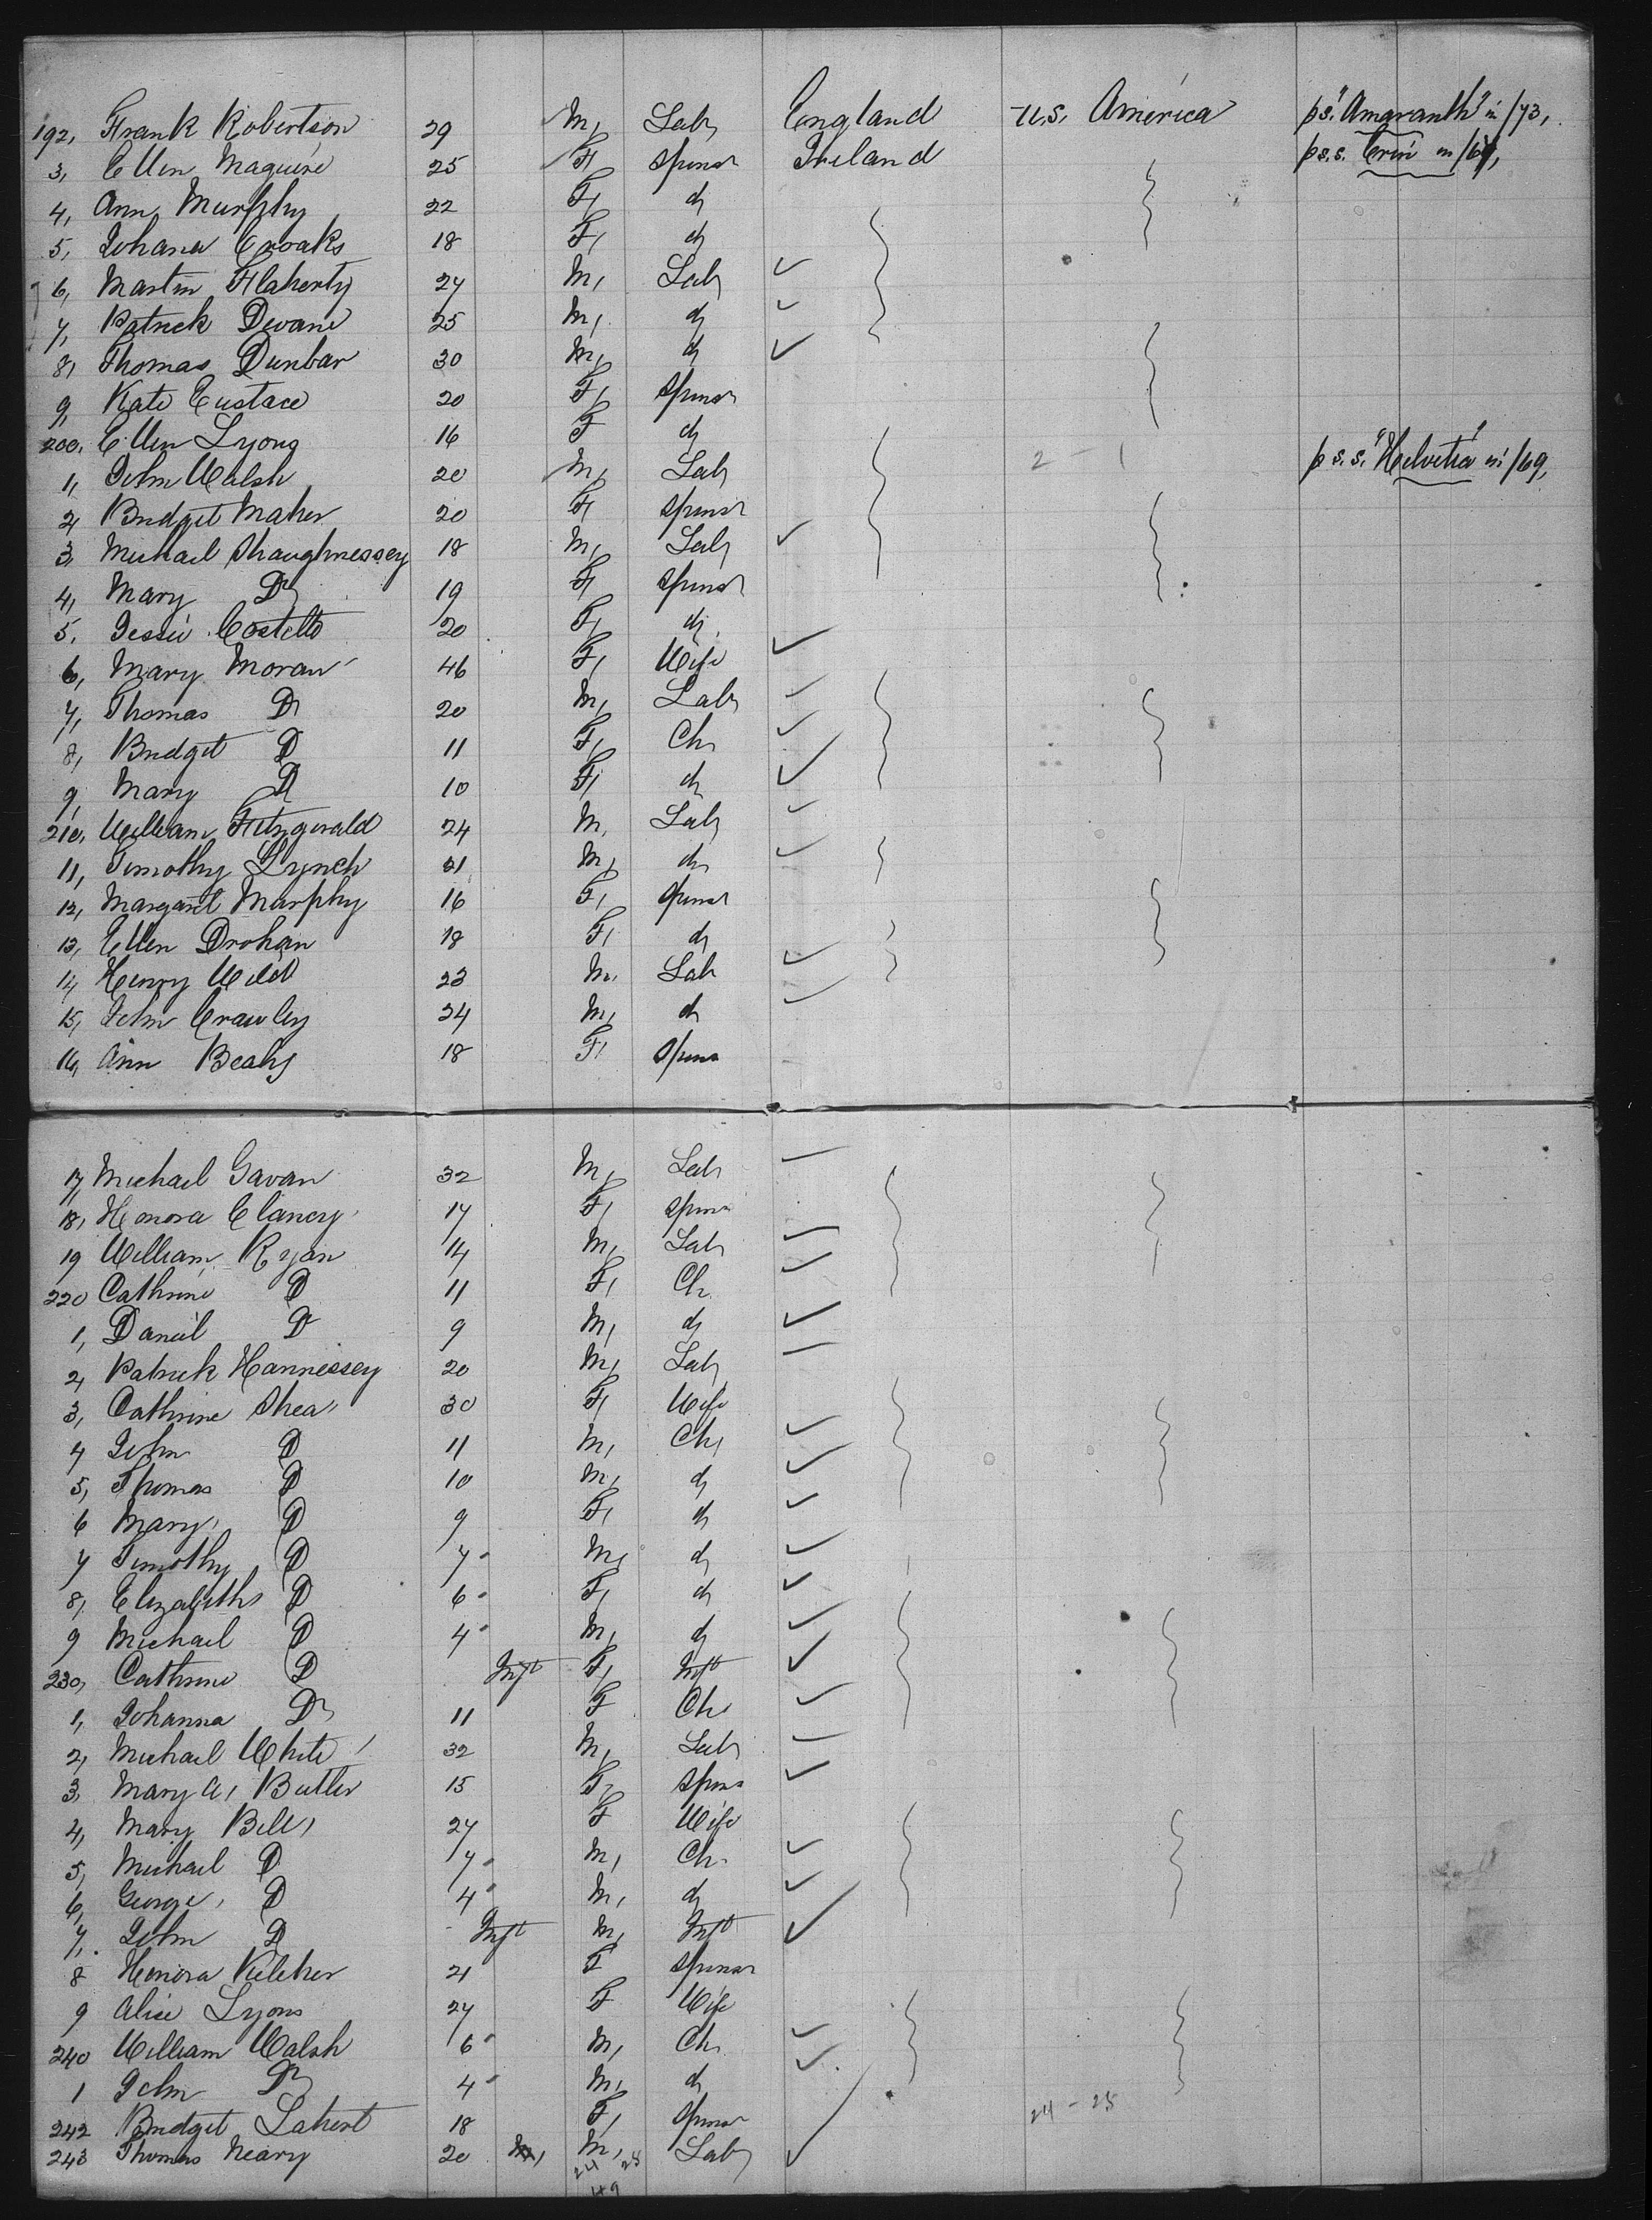 192, Frank Robertson 29 M, Lab, England U.S. America p s. "Amaranth" in /73,
3, Ellen Maguire 25 F, Spinsr Ireland p s.s. Erin in /67,
4, Ann Murphy 22 F, do
5, Johana Croake 18 F, do
6, Martin Flaherty 24 M, Lab,
7, Patrick Devane 25 M, do
8, Thomas Dunbar 30 M, do
9, Kate Eustace 20 F, Spinsr
200, Ellen Lyons 16 F do 2 - 1
1, John Walsh 20 M, Lab, p s.s. "Helvetia" in /69,
2, Bridget Maher 20 F, Spinsr
3, Michael Shaughnessey 18 M, Lab,
4, Mary Do 19 F, Spinsr
5, Jessie Costello 20 F, do
6, Mary Moran 46 F, Wife
7, Thomas D 20 M, Lab,
8, Bridget D 11 F, Ch,
9, Mary D 10 F, do
210, William Fitzgerald 24 M, Lab,
11, Timothy Lynch 21 M, do
12, Margaret Murphy 16 F, Spinsr
13, Ellen Drohan 18 F, do
14, Henry 23 M, Lab
15, John Crawley 24 M, do
16, Ann Beahy 18 F, Spins
17, Michael Gavan 32 M, Lab,
18, Honora Clancy 17 F, Spins
19 William Ryan 14 M, Lab,
220 Cathrine D 11 F, Ch.
1, Daniel D 9 M, do
2, Patrick Hannessey 20 M, Lab,
3, Cathrine Shea, 30 F, Wife
4 John D 11 M, Ch,
5, Thomas D 10 M, do
6 Mary, D 9 F, do
7 Timothy D 7 M, do
8, Elizabeth D 6 F, do
9 Michael D 4 M, do
230, Cathrine D Inft F, Inft
1, Johanna Do 11 F Ch
2, Michael White 32 M, Lab,
3, Mary A, Butler 15 F, Spins
4, Mary Bell, 27 F Wife
5, Michael D 7 M, Ch.
6, George, D 4 M, do
7, John D Inft M, Inft
8 Honora Kelcher 21 F Spinsr
9 Alice Lyons 27 F Wife
240 William Walsh 6 M, Ch,
1 John Do 4 M, do
242 Bridget Lahert 18 F, Spinsr 24 - 25
243 Thomas Neary 20 M, M, Lab,
24 25
49